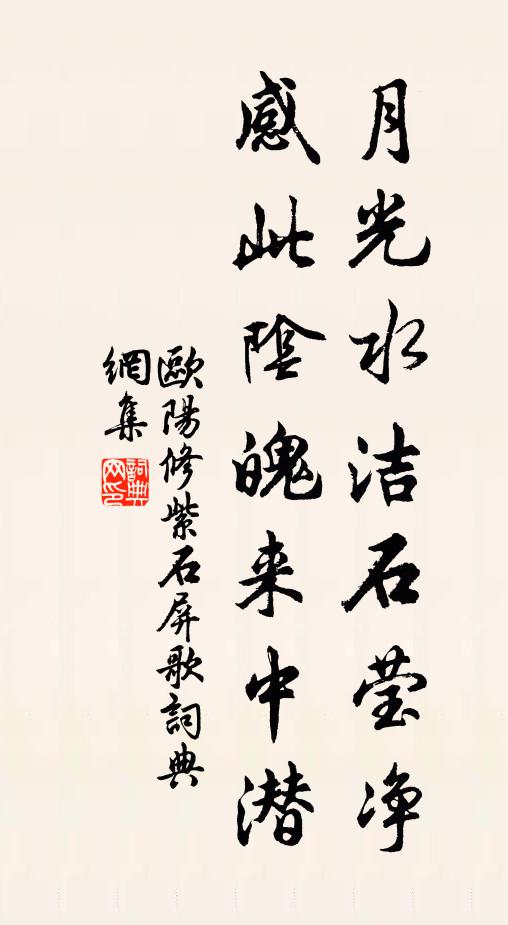 月光水洁石莹净
感此陰魄来中潜
歐陽修紫石屏歌詞典
網集
詞典
网印